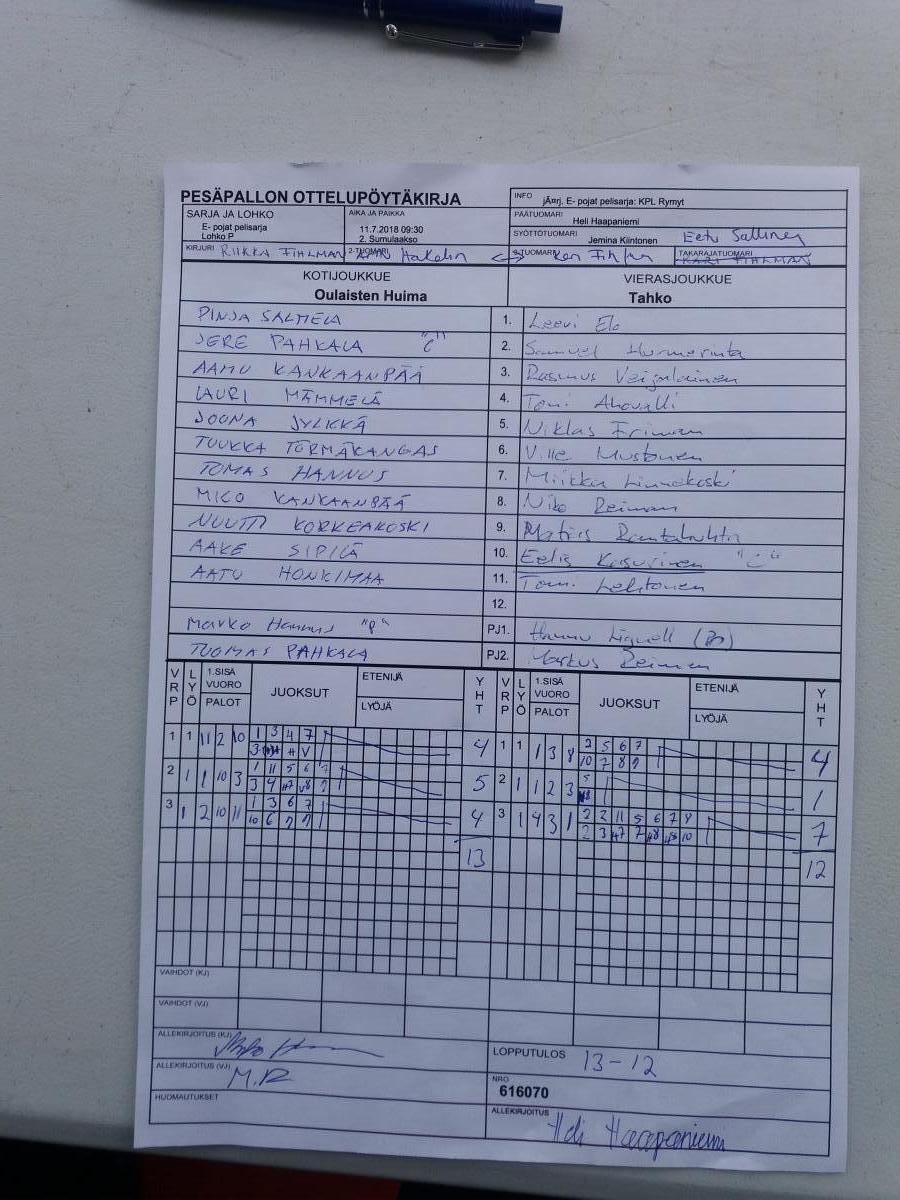 PESÄPALLON OTTELUPÖYTÄKIRJA
INFO jÃ¤rj. E- pojat pelisarja: KPL Rymyt
SARJA JA LOHKO
E- pojat pelisarja
Lohko P
AIKA JA PAIKKA
11.7.2018 09:30
2. Sumulaakso
PÄÄTUOMARI
Heli Haapaniemi
SYÖTTÖTUOMARI Jemina Kiintonen Eetu Sallinen
KIRJURI RIIKKA FIHLMAN 2-TUOMARI Hakelin TUOMARI TAKARAJATUOMARI KARI FIHLMAN
KOTIJOUKKUE
Oulaisten Huima
VIERASJOUKKUE
Tahko
PINJA SALMELA 1. Leevi Elo
JERE PAHKALA "C" 2. Samuel Hurmerinta
AAMU KANKAANPÄÄ 3. Rasmus Veijalainen
LAURI MÄMMELÄ 4. Tomi Ahovalli
JOONA JYLKKÄ 5. Niklas Friman
TUUKKA TÖRMÄKANGAS 6. Ville Mustonen
TOMAS HANNUS 7. Miikka Linnakoski
MICO KANKAANPÄÄ 8. Niko Reiman
NUUTTI KORKEAKOSKI 9. Matiis Rantahuhta
AAKE SIPILÄ 10. Eelis Kasurinen "C"
AATU HONKIMAA 11. Tomi Lehtonen
12.
Marko Hannus "P" PJ1. Hannu
TUOMAS PAHKALA PJ2. Markus Reiman
VRP LYÖ 1.SISÄ VUORO PALOT JUOKSUT ETENIJÄ LYÖJÄ YHT VRP LYÖ 1.SISÄ VUORO PALOT JUOKSUT ETENIJÄ LYÖJÄ YHT
1 1 11 2 10 1 3 4 7 4 1 1 1 3 8 2 5 6 7 4
3 10 7 8 9
2 1 1 10 3 1 11 5 6 7 5 2 1 1 2 3 5 1
3 4
3 1 2 10 11 1 3 6 7 4 3 1 4 3 1 2 2 11 5 6 7 8 7
10 6 7 9 2 3 7 10
13 12
VAIHDOT (KJ)
VAIHDOT (VJ)
ALLEKIRJOITUS (KJ)
LOPPUTULOS 13-12
ALLEKIRJOITUS (VJ) M.R
NRO
616070
HUOMAUTUKSET
ALLEKIRJOITUS Heli Haapaniemi